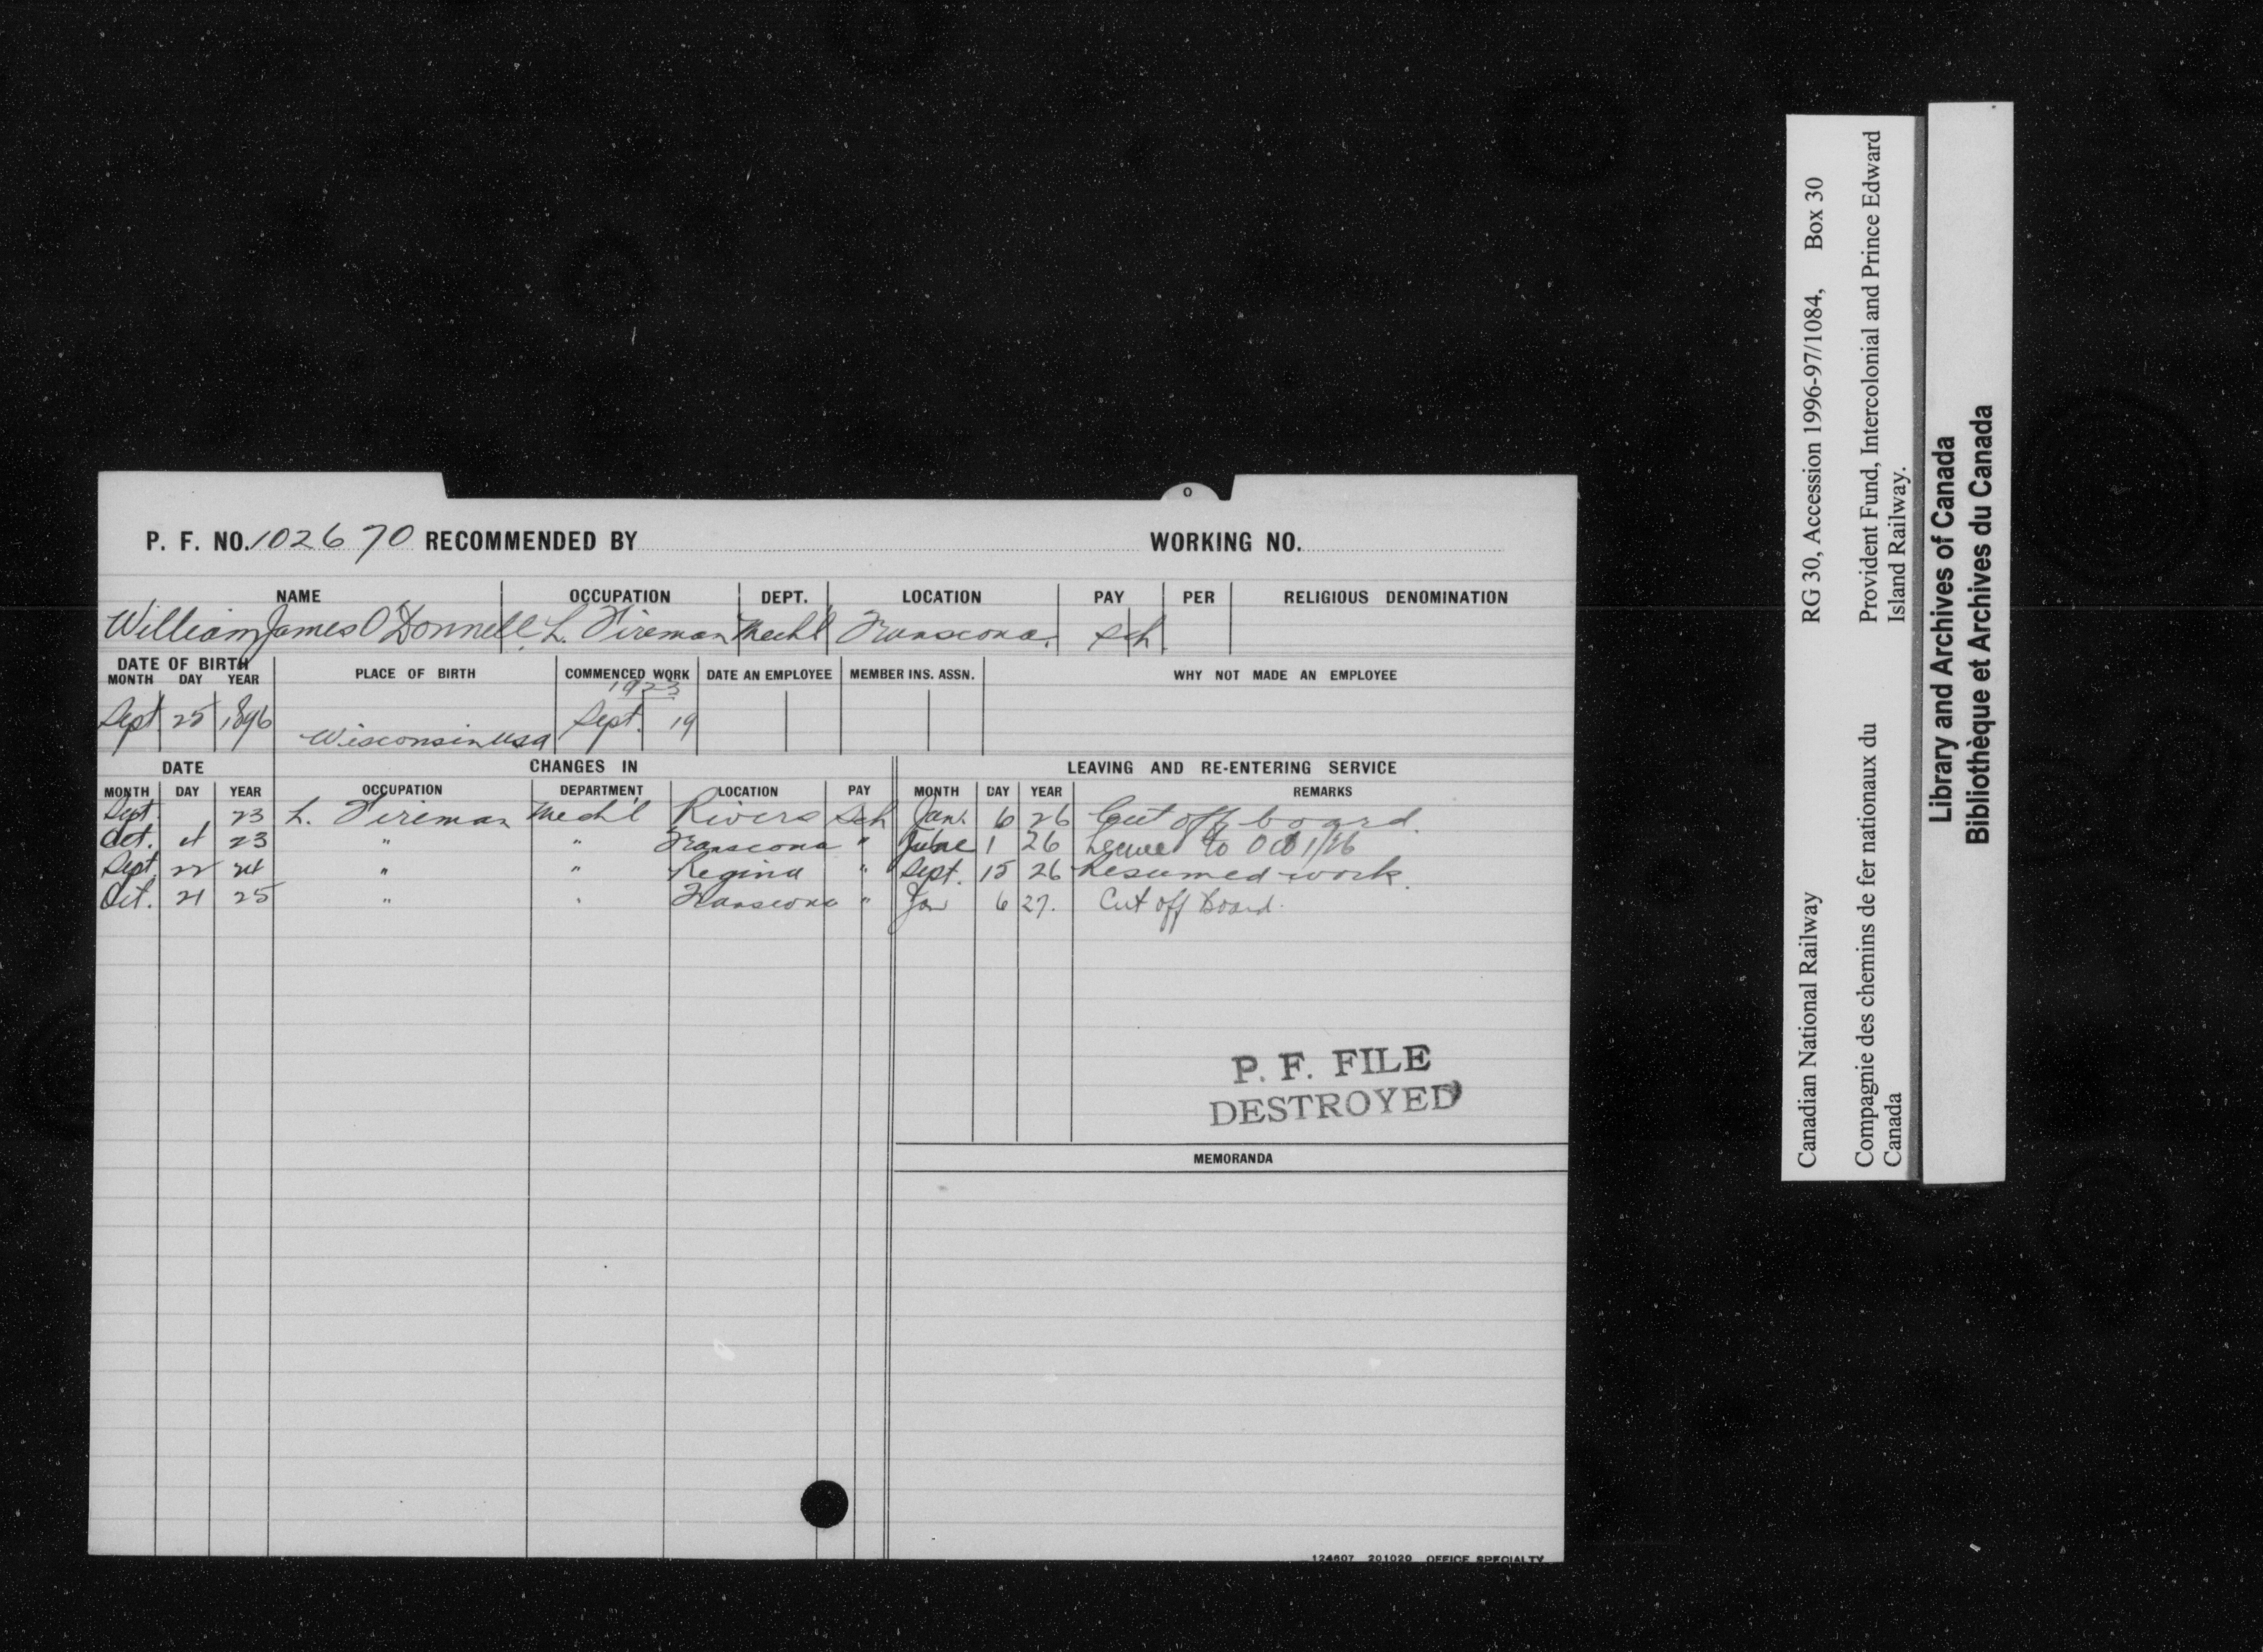 P. F. NO. 102670 RECOMMENDED BY WORKING NO.
NAME OCCUPATION DEPT. LOCATION PAY PER RELIGIOUS DENOMINATION
William James O'Donnell L. Fireman Mechl Transcona. Sch
DATE OF BIRTH PLACE OF BIRTH COMMENCED WORK DATE AN EMPLOYEE MEMBER INS. ASSN. WHY NOT MADE AN EMPLOYEE
MONTH DAY YEAR
1923
Sept 25 1896 Wisconsin USA Sept. 19
DATE CHANGES IN LEAVING AND RE-ENTERING SERVICE
MONTH DAY YEAR OCCUPATION DEPARTMENT LOCATION PAY MONTH DAY YEAR REMARKS
Sept. 23 L. Fireman Mechl Rivers Sch Jan. 6 26 Cut off board.
Oct. 4 23 " " Transcona " June 1 26 Leave to Oct 1/26
Sept. 22 24 " " Regina " Sept. 15 26 Resumed work.
Oct. 21 25 " " Transcona " Jan 6 27. Cut off Board.
P. F. FILE
DESTROYED
MEMORANDA
124607 201020 OFFICE SPECIALTY
Canadian National Railway RG 30, Accession 1996-97/1084, Box 30
Compagnie des chemins de fer nationaux du Provident Fund, Intercolonial and Prince Edward
Canada Island Railway.
Library and Archives of Canada
Bibliothèque et Archives du Canada